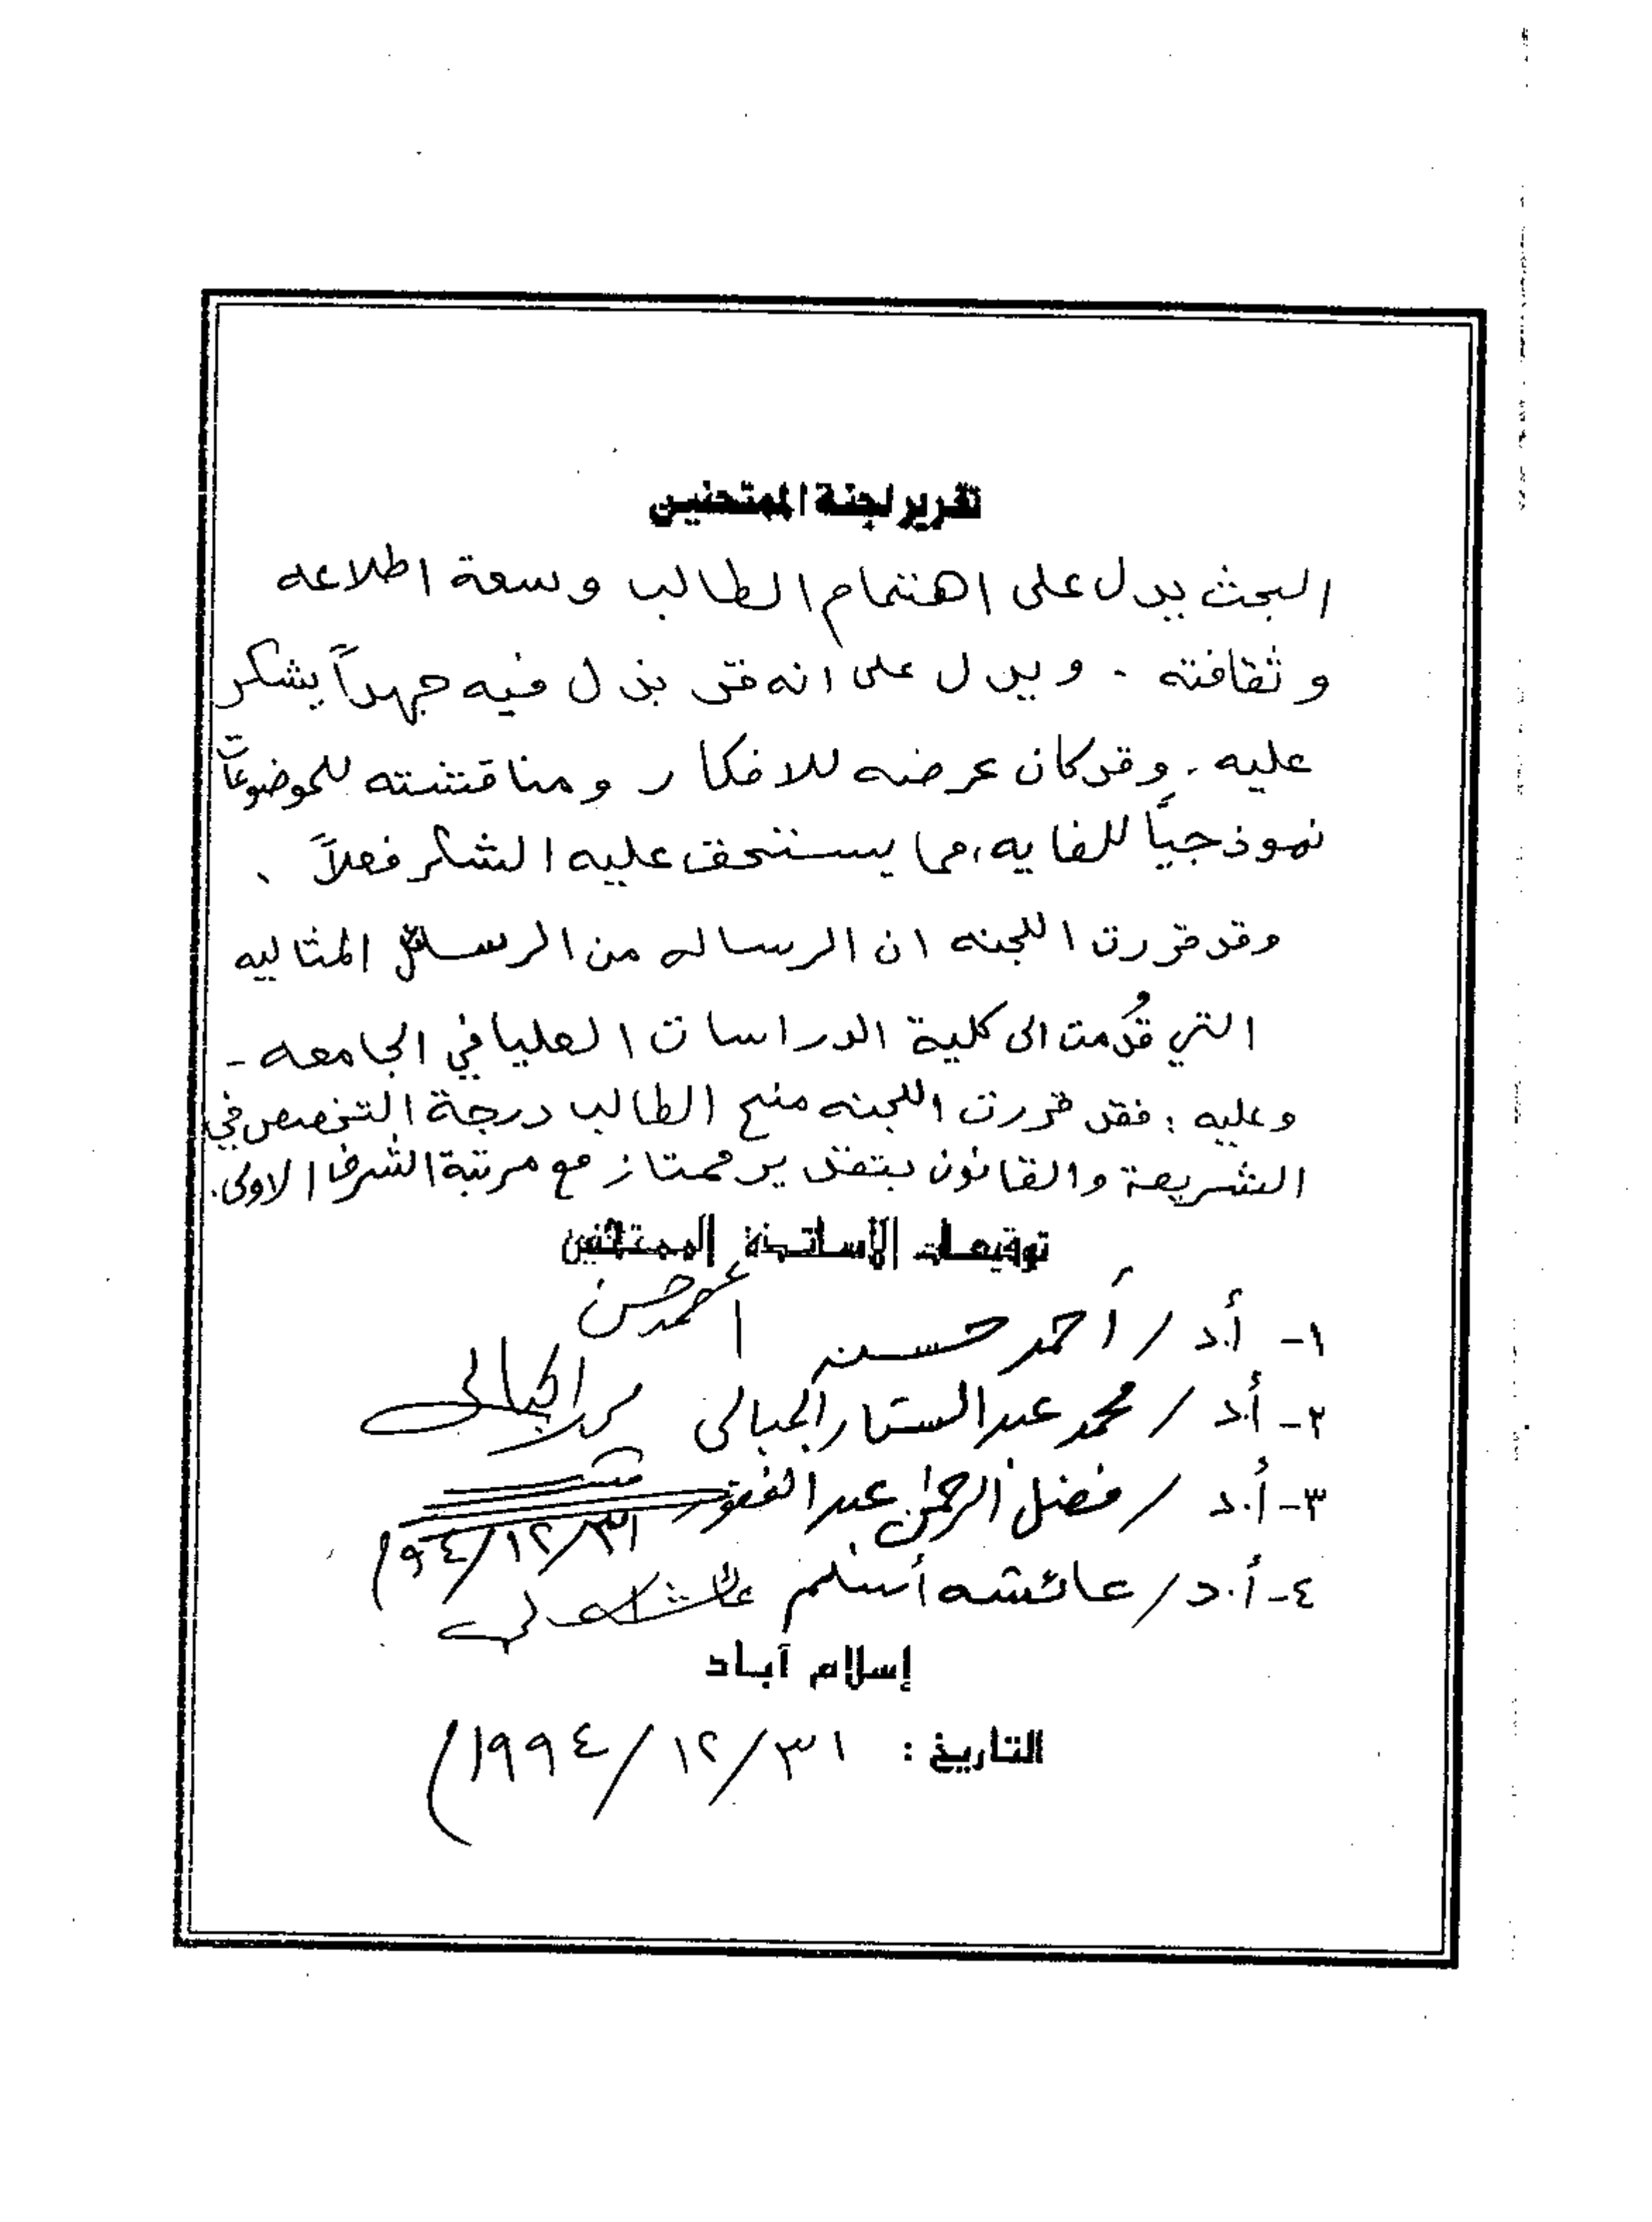 تقرير لجنة الممتحنين
البحث يدل على اهتمام الطالب وسعة اطلاعه
وثقافته . ويدل على انه قد بذل فيه جهداً يشكر
عليه . وقد كان عرضه للافكار ومناقشته للموضوعات
نموذجياً للغايه ، مما يستحق عليه الشكر فعلاً .
وقد قررت اللجنه ان الرساله من الرسائل المثاليه
التي قُدمت الى كلية الدراسات العليا في الجامعه -
وعليه : فقد قررت اللجنه منح الطالب درجة التخصص في
الشريعة والقانون بتقدير ممتاز مع مرتبة الشرف الاولى .
توقيعات الأساتذة الممتحنين
١- أ.د / أحمد حسن أحمد حسن
٢- أ.د / محمد عبد الستار الجبالى الجبالى
٣- أ.د / فضل الرحمن عبد الغفور
٣١/١٢/٩٤
٤- أ.د / عائشه أسلم
إسلام آباد
التاريخ : ٣١/١٢/١٩٩٤